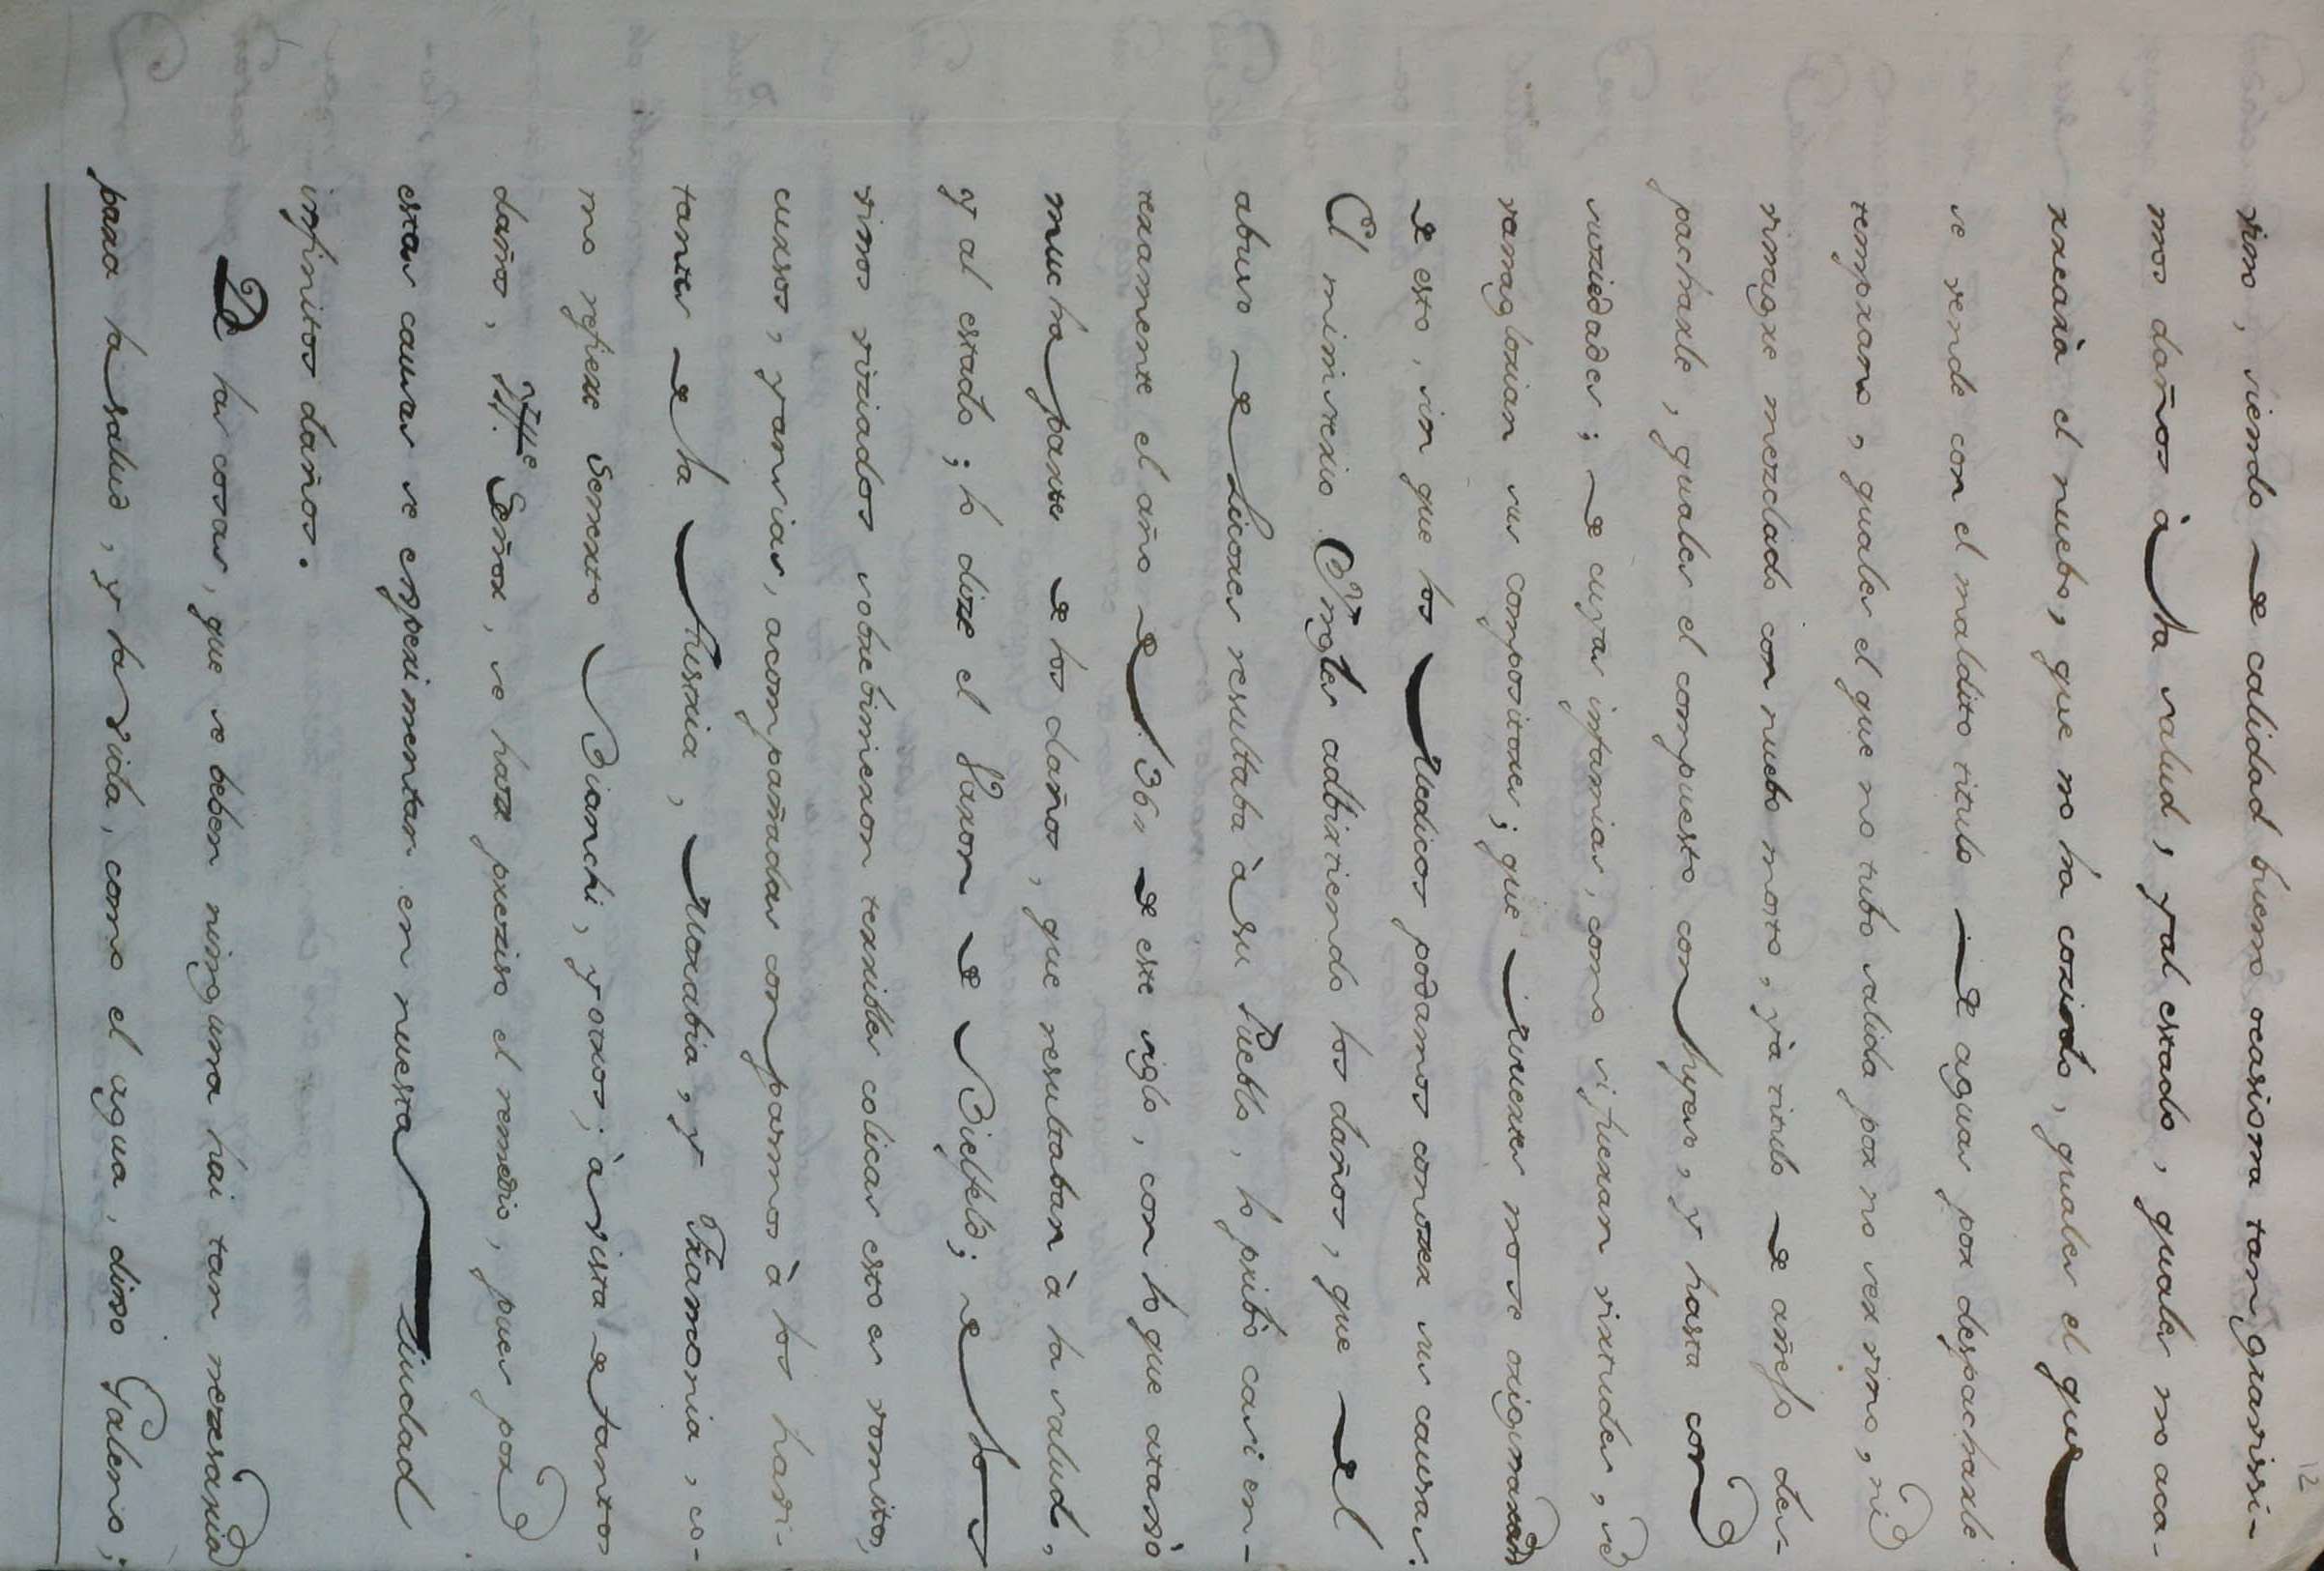 12
vino, siendo de calidad bueno ocasiona tan gravissi-
mos daños à la salud, y al estado, quales no aca-
rrearà el nuebo, que no ha cozido, quales el que
se vende con el maldito titulo de aguar por despacharle
temprano, quales el que no tubo salida por no ser vino, ni
vinagre mezclado con nuebo mosto, yà titulo de añejo des-
pacharle, quales el compuesto con hyeso, y hasta con
suziedades; de cuyas infamias, como si fueran virtudes, se
vanaglorian sus compositores; que muertes no se originaràn
de esto, sin que los Medicos podamos conozer sus causas.
El ministerio Yngles adbirtiendo los daños, que del
abuso de Licores resultaba à su Pueblo, lo pribò casi en-
teramente el año del 36,, de este siglo, con lo que atajò
mucha parte de los daños, que resultaban à la salud,
y al estado; lo dize el Baron de Bielfeld; de los
vinos viziados sobrebinieron terribles colicas esto es vomitos,
cursos, y ansias, acompañadas con pasmos à los havi-
tantes de la Austria, Morabia, y Franconia, co-
mo refiere Senerto Bianchi, y otros; à vista de tantos
daños, Ill.mo Señor, se haze preziso el remedio, pues por
estas causas se experimentan en nuestra Ziudad
infinitos daños.
De las cosas, que se beben ninguna hai tan nezesaria
para la salud, y la vida, como el agua, dixo Galeno;